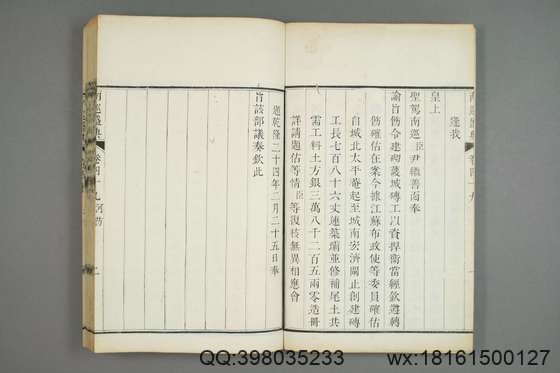 逢我
皇上
聖駕南巡臣尹繼善面奉
諭旨飭令建砌菱城磚工以資捍衛當經欽遵轉
飭確估在案今據江蘇布政使等委員確估
自城北太平菴起至城南宏濟閘止創建磚
工長七百八十六丈連築壩並修補尾土共
需工料土方銀三萬八千二百五兩零造冊
詳請題估等情臣等復核無異相應會
題乾隆二十四年二月二十五日奉
旨該部議奏欽此
南巡盛典 卷四十九 河防
QQ:398035233
wx:18161500127